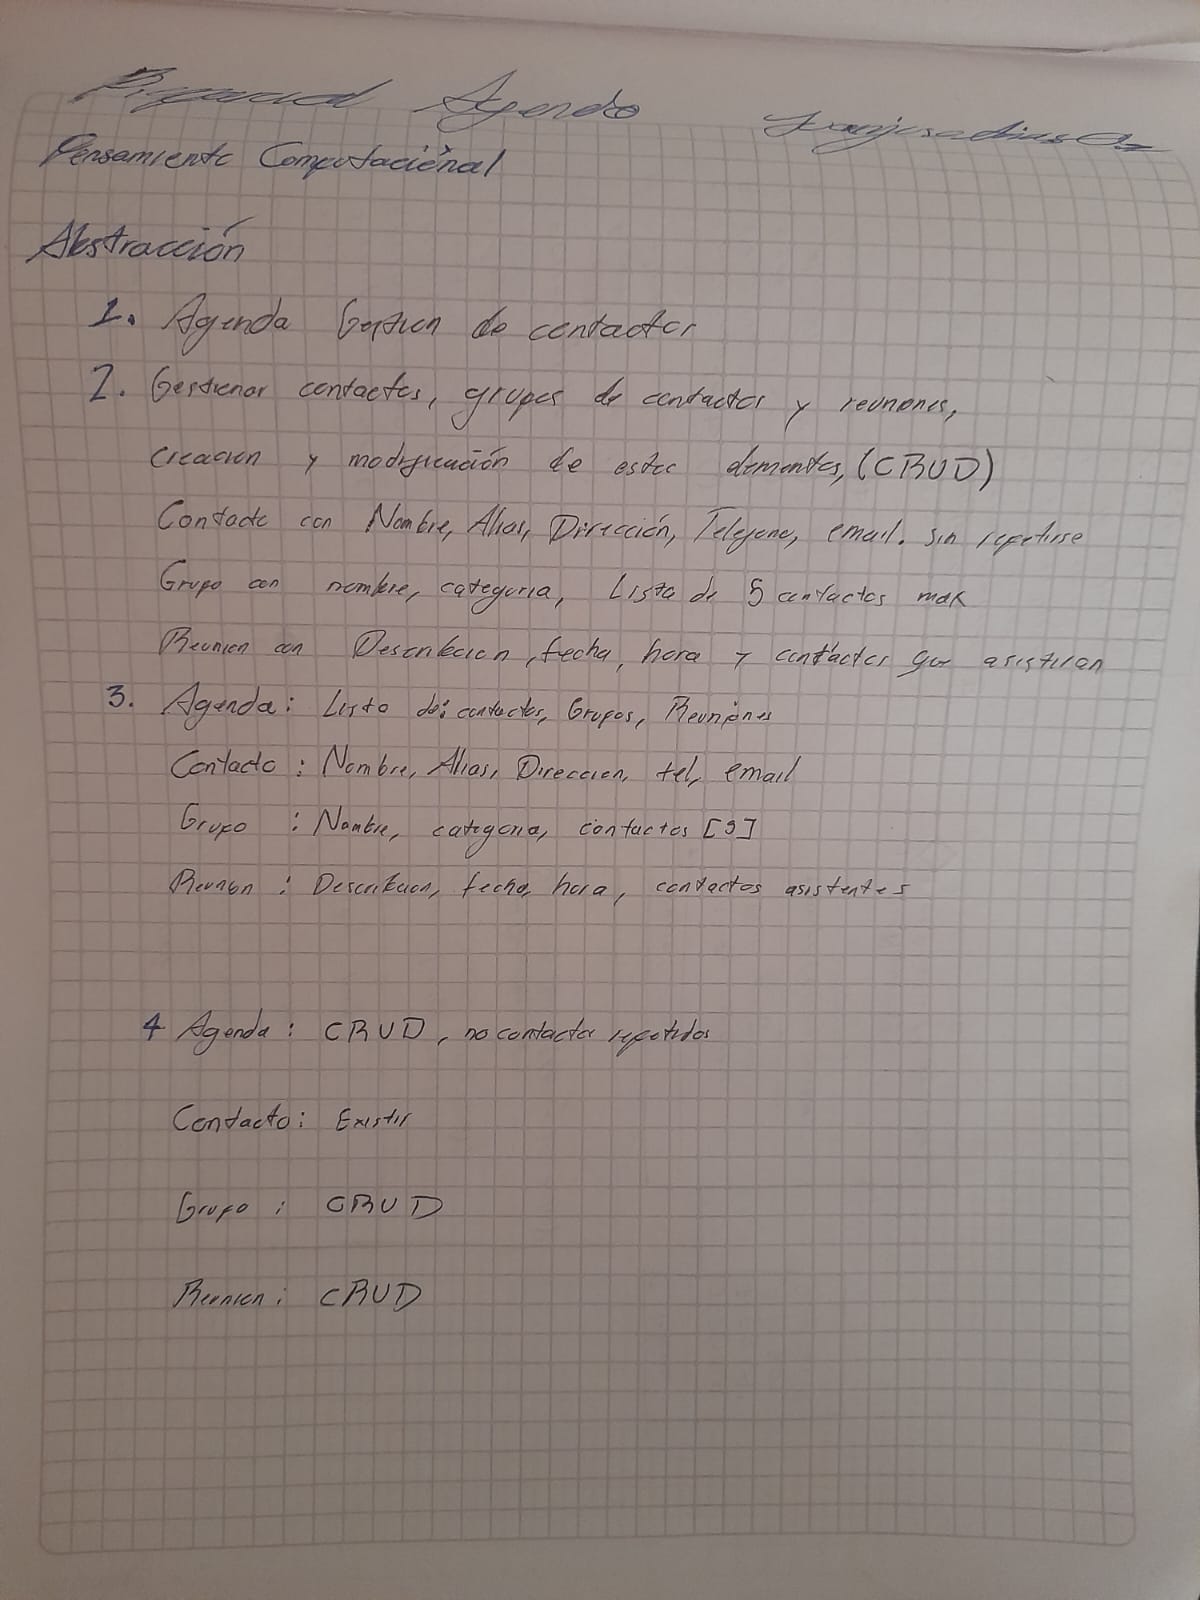 Agenda
Pensamiento Computacional
Abstracción
1. Agenda Gestion de contactos
2. Gestionar contactos, grupos de contactos y reuniones,
creacion y modificación de estos elementos, (CRUD)
Contacto con Nombre, Alias, Dirección, Telefono, email. sin repetirse
Grupo con nombre, categoria, Lista de 5 contactos max
Reunion con Describcion, fecha, hora y contactos que asistiran
3. Agenda: Lista de: contactos, Grupos, Reuniones
Contacto: Nombre, Alias, Direccion, tel, email
Grupo : Nombre, categoria, contactos [5]
Reunion : Describcion, fecha, hora, contactos asistentes
4 Agenda: CRUD, no contactos repetidos
Contacto: Existir
Grupo : CRUD
Reunion: CRUD